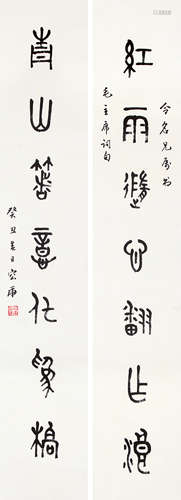 今名兄属书
紅雨隨心翻作浪
毛主席词句
青山著意化為橋
癸丑春日